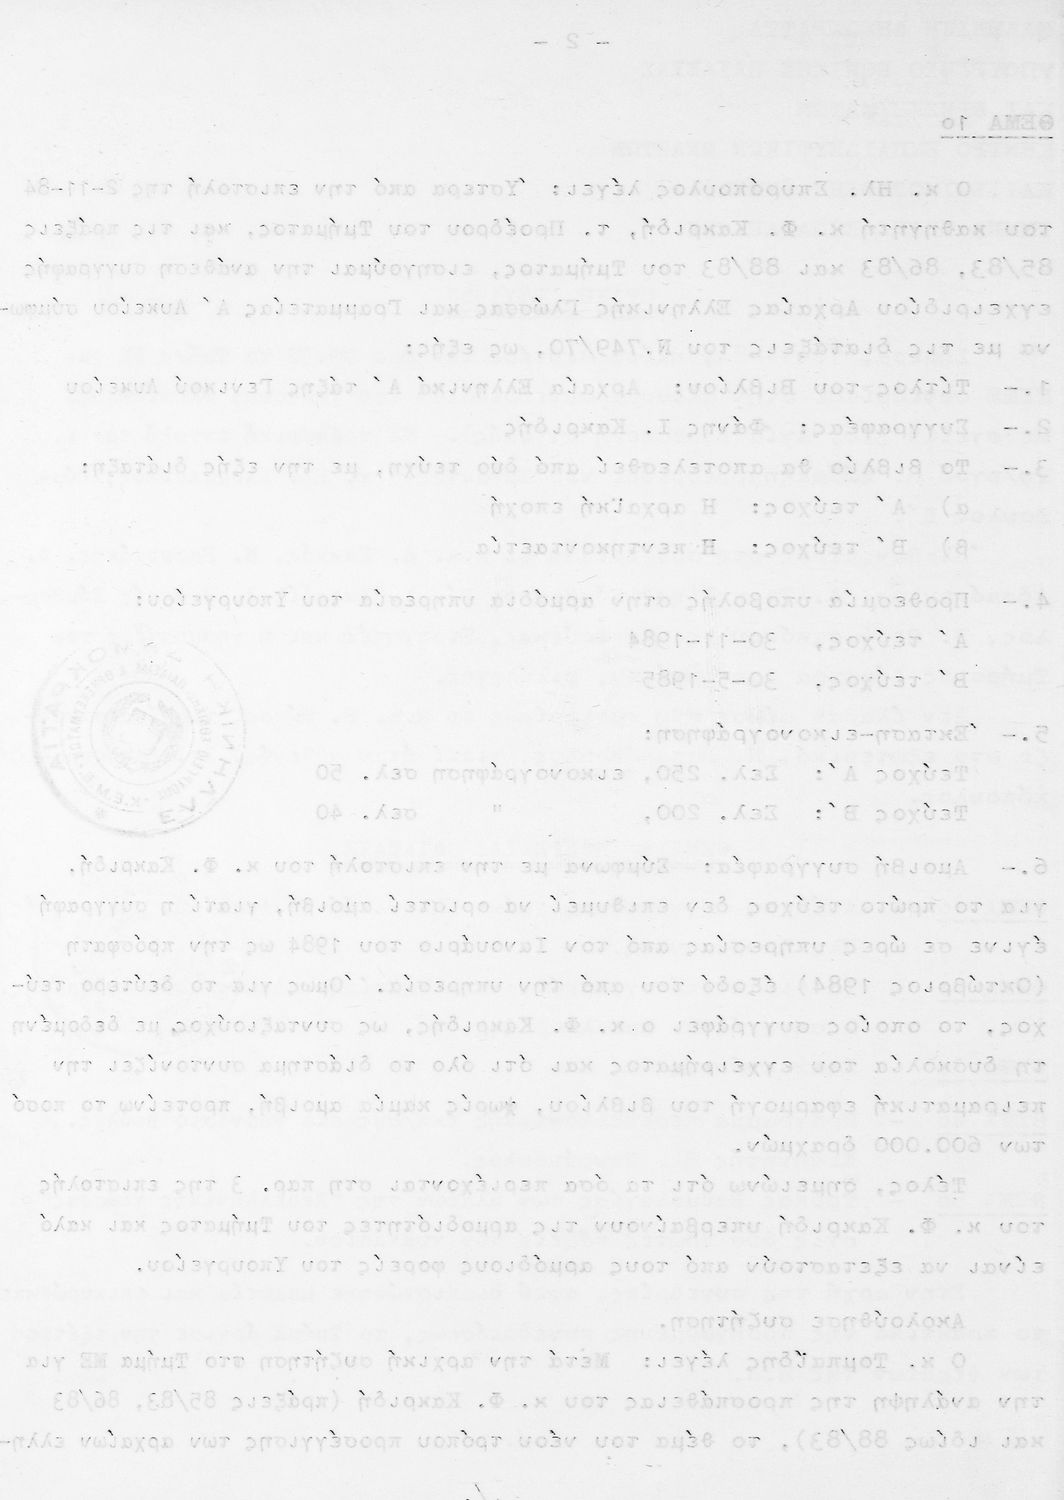 - 2 -
ΘΕΜΑ 1ο
Ο κ. Ηλ. Σπυρόπουλος λέγει: Ύστερα από την επιστολή της 2-11-84
του καθηγητή κ. Φ. Κακριδή, τ. Προέδρου του Τμήματος, και τις πράξεις
85/83, 86/83 και 88/83 του Τμήματος, εισηγούμαι την ανάθεση συγγραφής
εγχειριδίου Αρχαίας Ελληνικής Γλώσσας και Γραμματείας Α΄ Λυκείου σύμφω-
να με τις διατάξεις του Ν.749/70, ως εξής:
1.- Τίτλος του Βιβλίου: Αρχαία Ελληνικά Α΄ τάξης Γενικού Λυκείου
2.- Συγγραφέας: Φάνης Ι. Κακριδής
3.- Το βιβλίο θα αποτελεσθεί από δύο τεύχη, με την εξής διάταξη:
α) Α΄ τεύχος: Η αρχαϊκή εποχή
β) Β΄ τεύχος: Η πεντηκονταετία
4.- Προθεσμία υποβολής στην αρμόδια υπηρεσία του Υπουργείου:
Α΄ τεύχος, 30-11-1984
Β΄ τεύχος, 30-5-1985
5.- Έκταση-εικονογράφηση:
Τεύχος Α΄: Σελ. 250, εικονογράφηση σελ. 50
Τεύχος Β΄: Σελ. 200, " σελ. 40
6.- Αμοιβή συγγραφέα: Σύμφωνα με την επιστολή του κ. Φ. Κακριδή,
για το πρώτο τεύχος δεν επιθυμεί να οριστεί αμοιβή, γιατί η συγγραφή
έγινε σε ώρες υπηρεσίας από τον Ιανουάριο του 1984 ως την πρόσφατη
(Οκτώβριος 1984) έξοδό του από την υπηρεσία. Όμως για το δεύτερο τεύ-
χος, το οποίος συγγράφει ο κ. Φ. Κακριδής, ως συνταξιούχος, με δεδομένη
τη δυσκολία του εγχειρήματος και ότι όλο το διάστημα συντονίζει την
πειραματική εφαρμογή του βιβλίου, χωρίς καμία αμοιβή, προτείνω το ποσό
των 600.000 δραχμών.
Τέλος, σημειώνω ότι τα όσα περιέχονται στη παρ. 3 της επιστολής
του κ. Φ. Κακριδή υπερβαίνουν τις αρμοδιότητες του Τμήματος και καλό
είναι να εξεταστούν από τους αρμόδιους φορείς του Υπουργείου.
Ακολούθησε συζήτηση.
Ο κ. Τομπαΐδης λέγει: Μετά την αρχική συζήτηση στο Τμήμα ΜΕ για
την ανάληψη της προσπάθειας του κ. Φ. Κακριδή (πράξεις 85/83, 86/83
και ιδίως 88/83), το θέμα του νέου τρόπου προσέγγισης των αρχαίων ελλη-
ΕΛΛΗΝΙΚΗ ΔΗΜΟΚΡΑΤΙΑ
Κ.Ε.Μ.Ε.